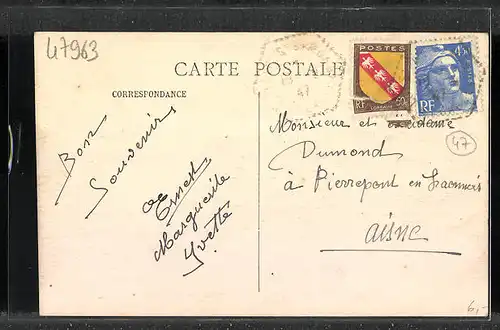 47963
CARTE POSTALE
CORRESPONDANCE
POSTES
LORRAINE
RF 60c
4F50
RF
47
47
Bon
Souvenir
Ernest
Marguerite
Yvette
Monsieur et Madame
Dumond
à Pierrepont en Laonnois
Aisne
6,-